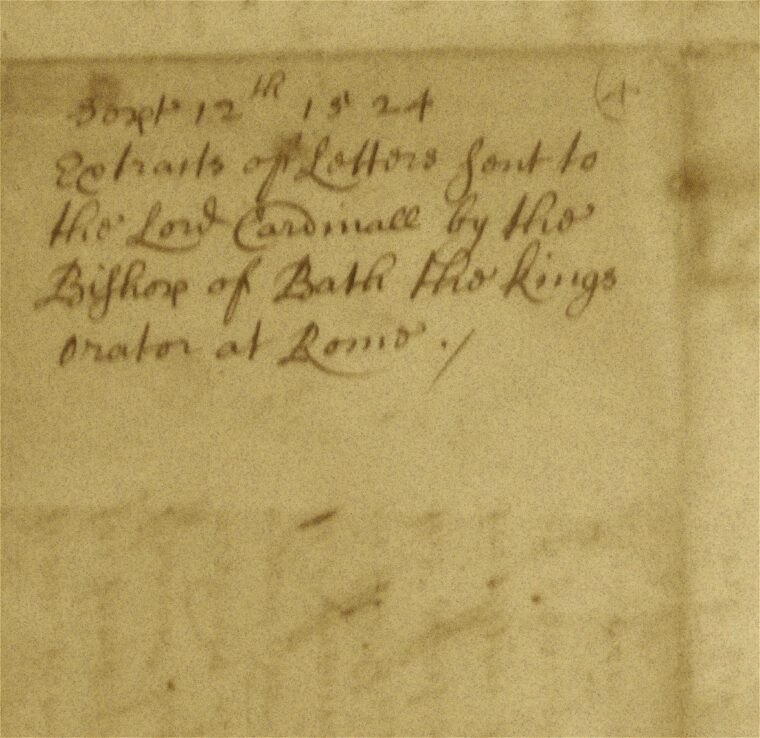 Sept 12th 1524 (4
Extraits of Letters sent to
the Lord Cardinall by the
Bishop of Bath the kings
orator at Rome ./